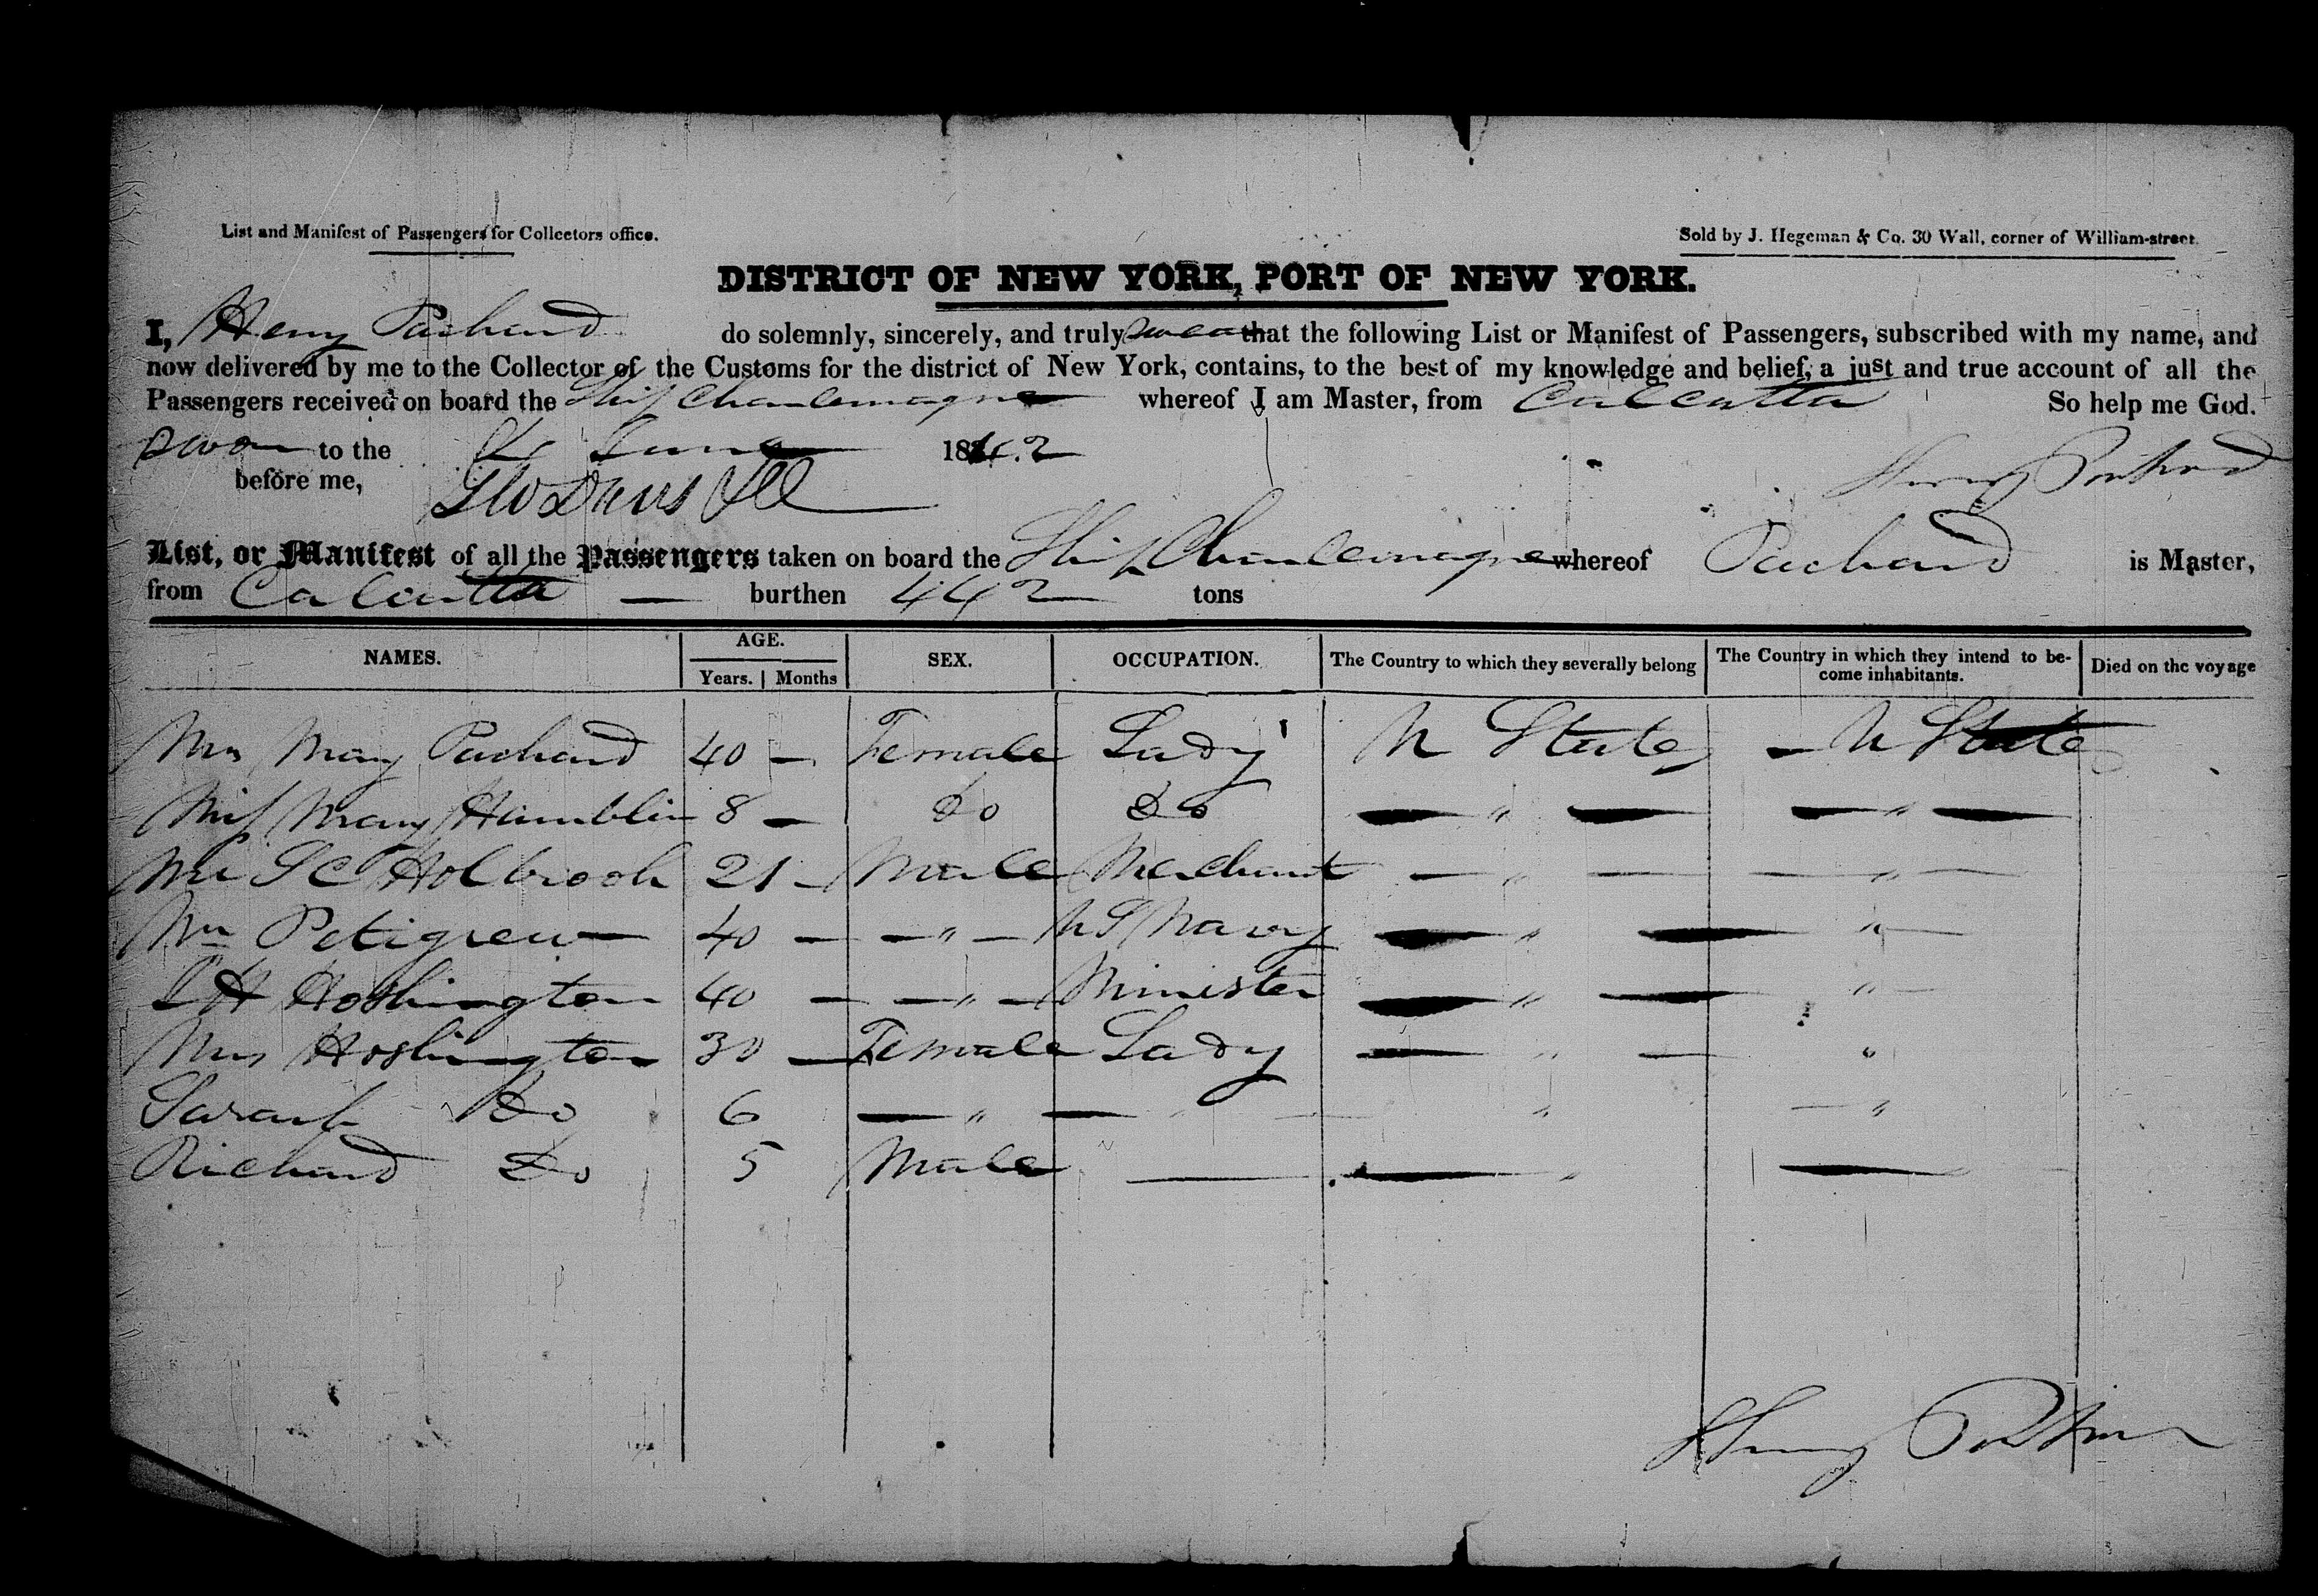 List and Manifest of Passengers for Collectors office.
Sold by J. Hegeman & Co. 30 Wall, corner of William-street.
DISTRICT OF NEW YORK, PORT OF NEW YORK.
I, Henry Pachard do solemnly, sincerely, and truly swear that the following List or Manifest of Passengers, subscribed with my name, and
now delivered by me to the Collector of the Customs for the district of New York, contains, to the best of my knowledge and belief, a just and true account of all the
Passengers received on board the Ship Charlemagne whereof I am Master, from Calcutta So help me God.
Sworn to the June 1842
before me, Henry Pachard
List, or Manifest of all the Passengers taken on board the Ship Charlemagne whereof Pachard is Master,
from Calcutta — burthen 442 tons
NAMES. AGE. Years. Months SEX. OCCUPATION. The Country to which they severally belong The Country in which they intend to be-come inhabitants. Died on the voyage
Mrs Mary Pachard 40 — Female Lady U States — U States
Miss Mary Hamblin 8 — Do Do — " — — " —
Mr S C Holbrook 21 — Male Merchant — " — — " —
Mr Petigrew 40 — — " — U S Navy — " — " —
H Hoshington 40 — — " — Minister — " — " —
Mrs Hoshington 30 — Female Lady — " — "
Sarah Do 6 — " — " — "
Richard Do 5 Male — — " —
Henry Pachard